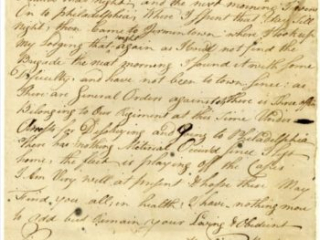 that night, and the next morning I went
On to philadelphia, Where I Spent that Day, till
Night, then Came to Jermantown where I took up
My Lodging that again as I Could not find the
Brigade the next morning I found it with Some
Difficulty, and have not been to town Since, as
thare are General Orders against there is three
Belonging to Our Regiment at this Time Under
for Deploying and going to Philadelphia
Thare has nothing Matireal Ocurd Since I left
home, the last is playing off the
I Am Very well at present I hope these May
Find you all, in health I have nothing more
to add but Remain your Loving & Obedient